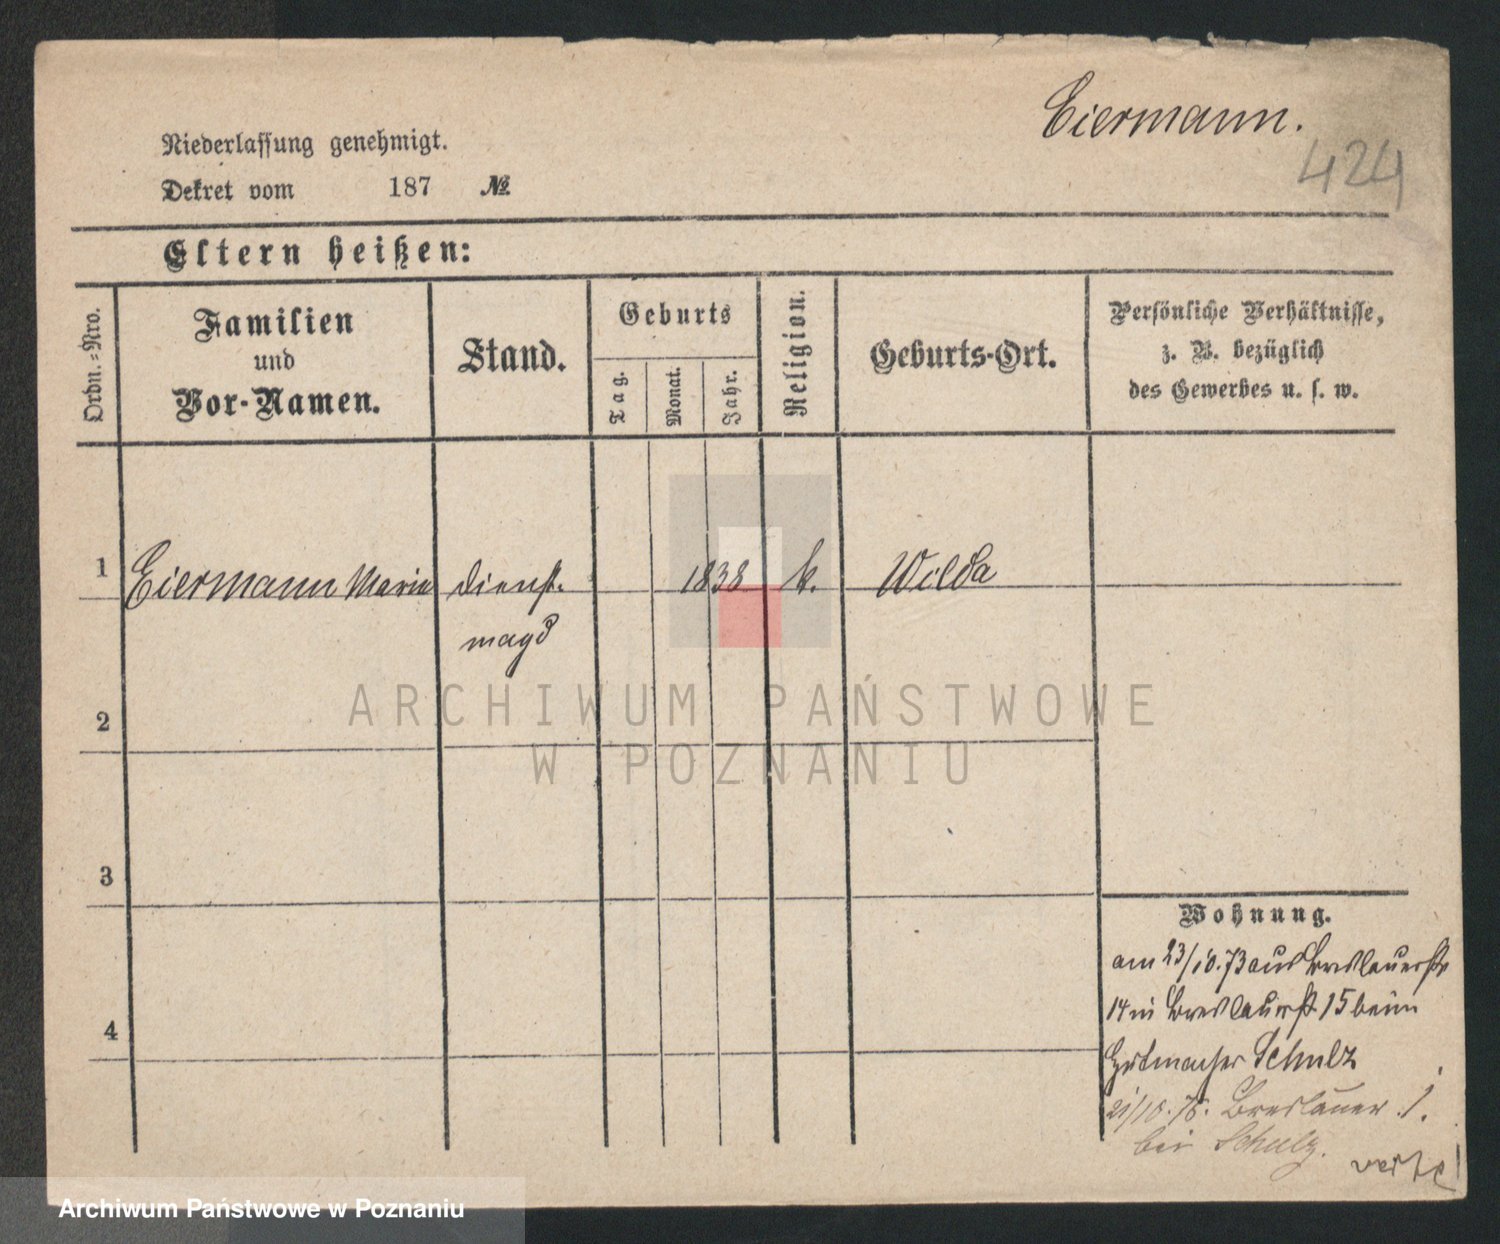 Eiermann.
424
Niederlassung genehmigt.
Dekret vom 187 №
Eltern heißen:
Ordn.-Nro.
Familien
und
Vor-Namen.
Stand.
Geburts
Tag.
Monat.
Jahr.
Religion.
Geburts-Ort.
Persönliche Verhältnisse,
z. B. bezüglich
des Gewerbes u. s. w.
1 Eiermann Maria Dienst- 1838 k. Wilda
magd
2
3
4
Wohnung.
am 23/10.73 aus Breslauerstr
14 in Breslauerstr 15 beim
Hutmacher Schulz
21/10.76. Breslauer 1.
bei Schulz.
ARCHIWUM PAŃSTWOWE
W POZNANIU
Archiwum Państwowe w Poznaniu